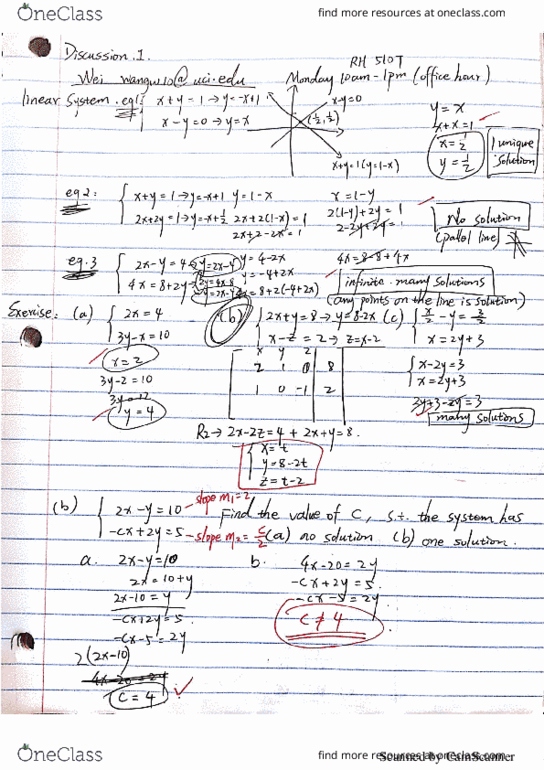 OneClass
find more resources at oneclass.com
Discussion 1.
RH 510T
Wei wangw10@uci.edu
Monday 10am-1pm (office hour)
linear system. eg1: { x+y=1 → y=-x+1
x-y=0 → y=x
x-y=0
(½,½)
x+y=1 (y=1-x)
y=x
x+x=1
x=½
y=½
1 unique solution
eg2: { x+y=1 → y=-x+1 y=1-x
2x+2y=1 → y=-x+½ 2x+2(1-x)=1
2x+2-2x=1
x=1-y
2(1-y)+2y=1
2-2y+2y=1
No solution
(parallel line)
eg.3 { 2x-y=4 → y=2x-4 y=4-2x
y=-4+2x
4x=8+2y → 2y=4x-8
y=2x-4 =8+2(-4+2x)
4x=8-8+4x
infinite many solutions
(any points on the line is solution)
Exercise: (a) { 2x=4
3y-x=10
x=2
3y-2=10
3y=12
y=4
(b) { 2x+y=8 → y=8-2x
x-z=2 → z=x-2
x y z
2 1 0 8
1 0 -1 2
R₂→ 2x-2z=4 + 2x+y=8.
{ x=t
y=8-2t
z=t-2
(c) { x/2 - y = 3/2
x=2y+3
{ x-2y=3
x=2y+3
2y+3-2y=3
many solutions
(b) { 2x-y=10 - slope m₁=2
-cx+2y=5 - slope m₂=c/2
Find the value of C, s.t. the system has
(a) no solution (b) one solution.
a. 2x-y=10
2x=10+y
2x-10=y
-cx+2y=5
-cx-5=2y
2(2x-10)
4x-20=2y
C=4
b. 4x-20=2y
-cx+2y=5
-cx-5=2y
C≠4
OneClass
find more resources at oneclass.com
Scanned by CamScanner